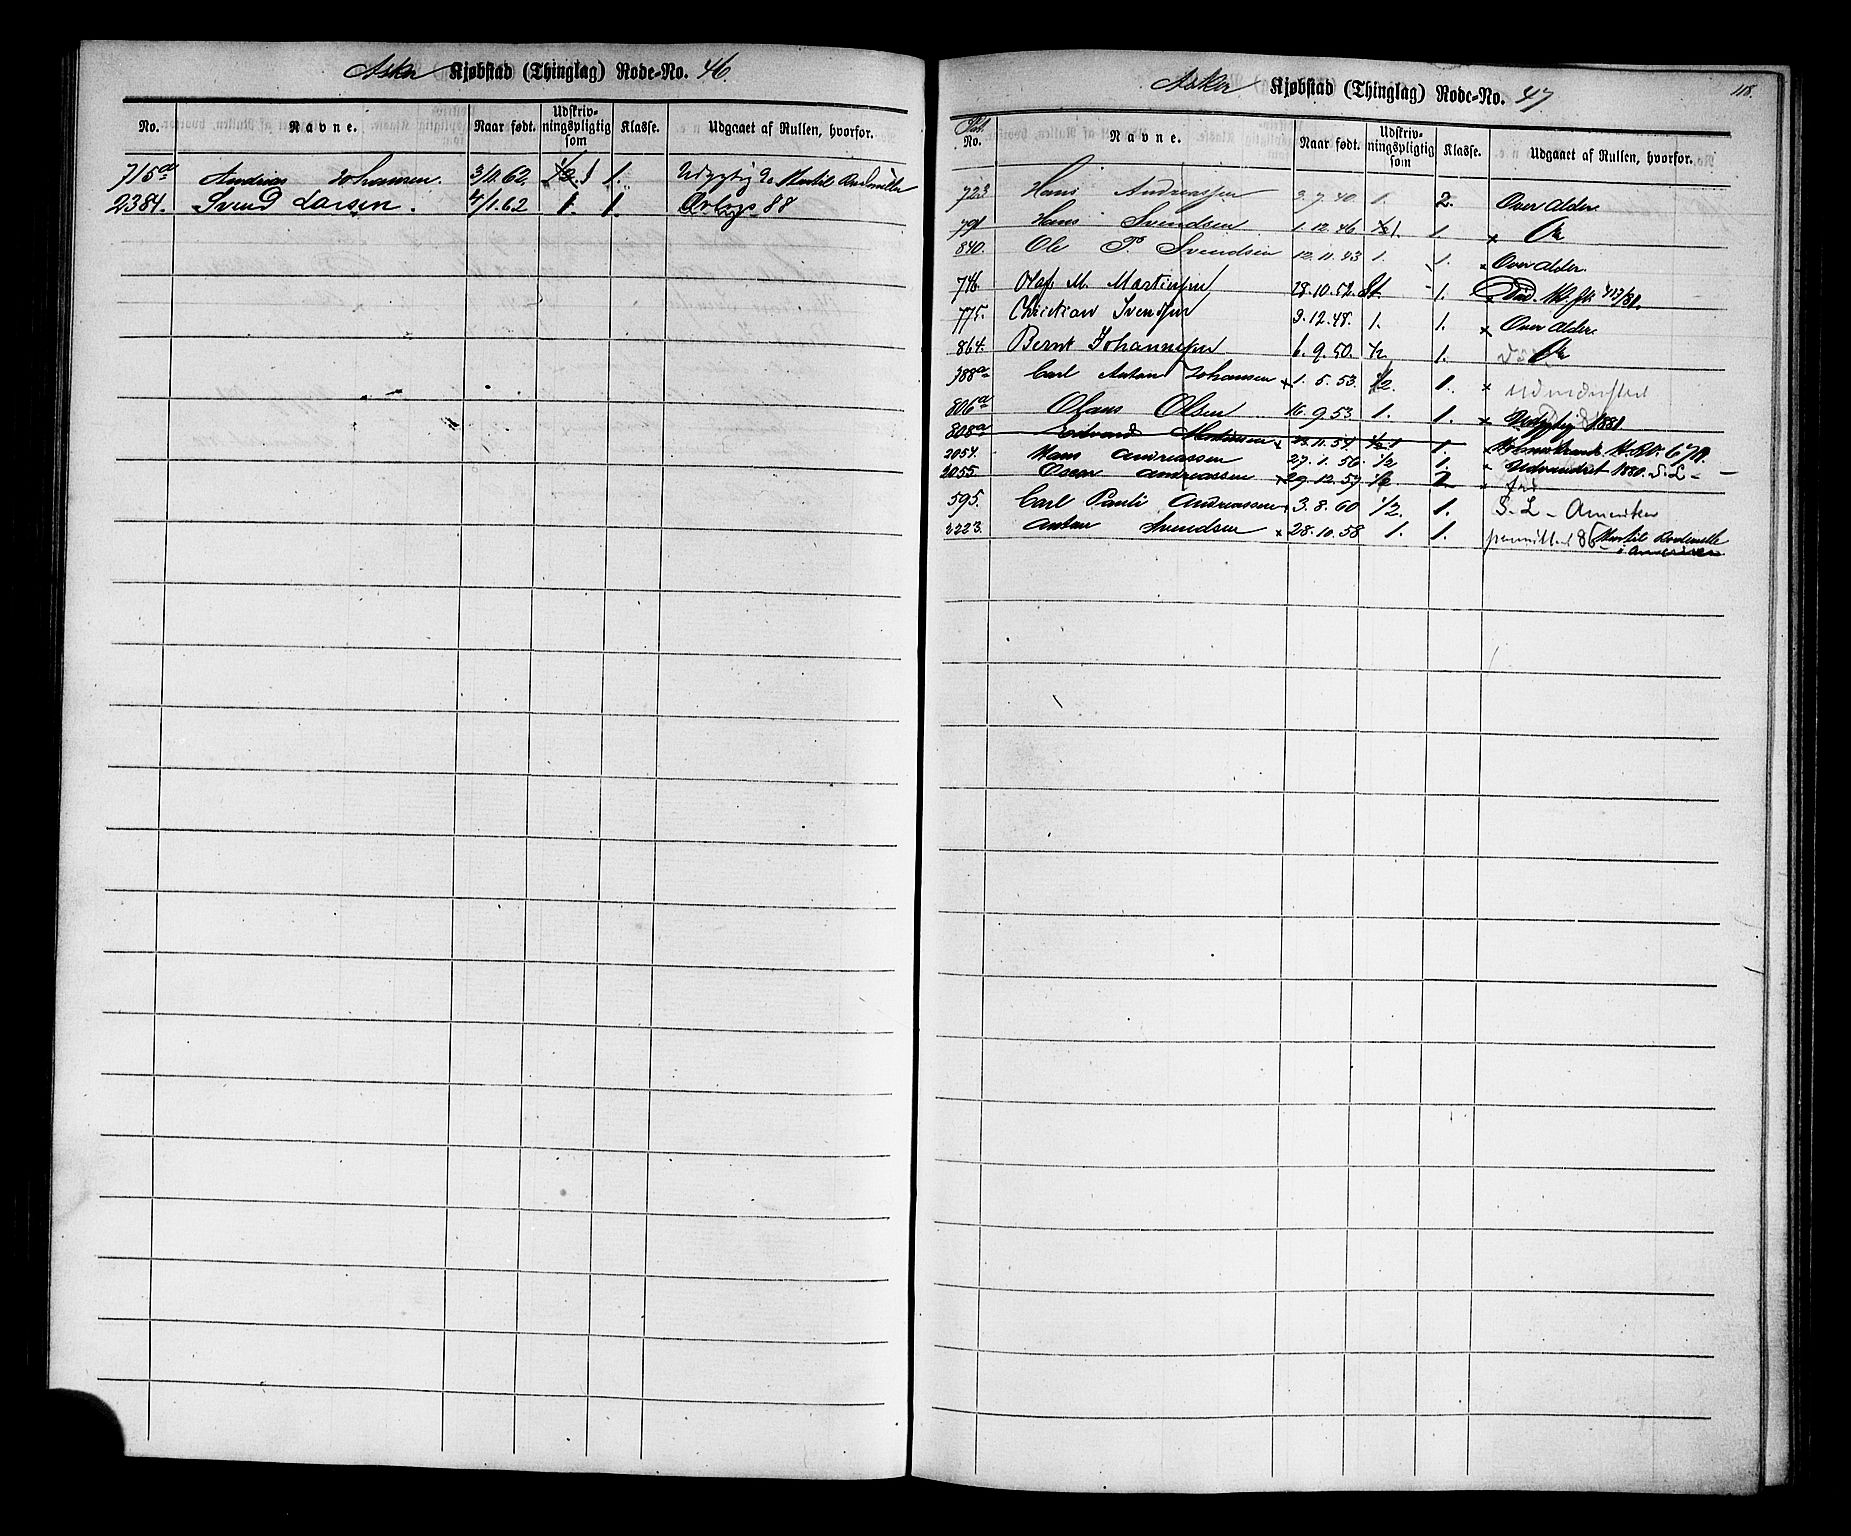 Asker Kjøbstad (Thinglag) Rode-No. 46.
No. Navne. Naar født. Udskriv-ningspligtig som Klasse. Udgaaet af Rullen, hvorfor.
715a Andreas Johansen. 3/11.62. 1/2. 1 1. Udygtig
2384. Svend Larsen. 4/1.62 1. 1. Orlogs 88
118.
Asker Kjøbstad (Thinglag) Rode-No. 47
No. Navne. Naar født. Udskriv-ningspligtig som Klasse. Udgaaet af Rullen, hvorfor.
723 Hans Andreassen 3.7.40. 1. 2. Over alder.
791 Hans Svendsen 1.12.46 1/2 1. 1. x
840. Ole P. Svendsen 12.11.43 1. 1. x Over alder.
746. Olaf M. Martinsen 28.10.52. St. 1. Död.
775. Christian Svendsen 3.12.48. 1. 1. x Over alder.
864. Bernt Johannesen 6.9.50. 1/2 1.
788a Carl Anton Johansen x 1.5.53. 1/2. 1. x
806a Olaus Olsen 16.9.53 1. 1. x Udygtig 1881
808a Edvard 1.
2054. Hans Andreassen 27.1.56. 1/2 1. Udvandret 1880. S. L -
2055 Oscar Andreassen x 29.12.59 1/2 2
595. Carl Pauli Andreassen 3.8.60 1/2. 1. S. L - Amerika
2223. Anton Svendsen x 28.10.58 1. 1. 86